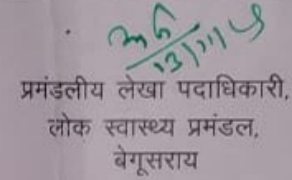 प्रमंडलीय लेखा पदाधिकारी,
लोक स्वास्थ्य प्रमंडल,
बेगूसराय